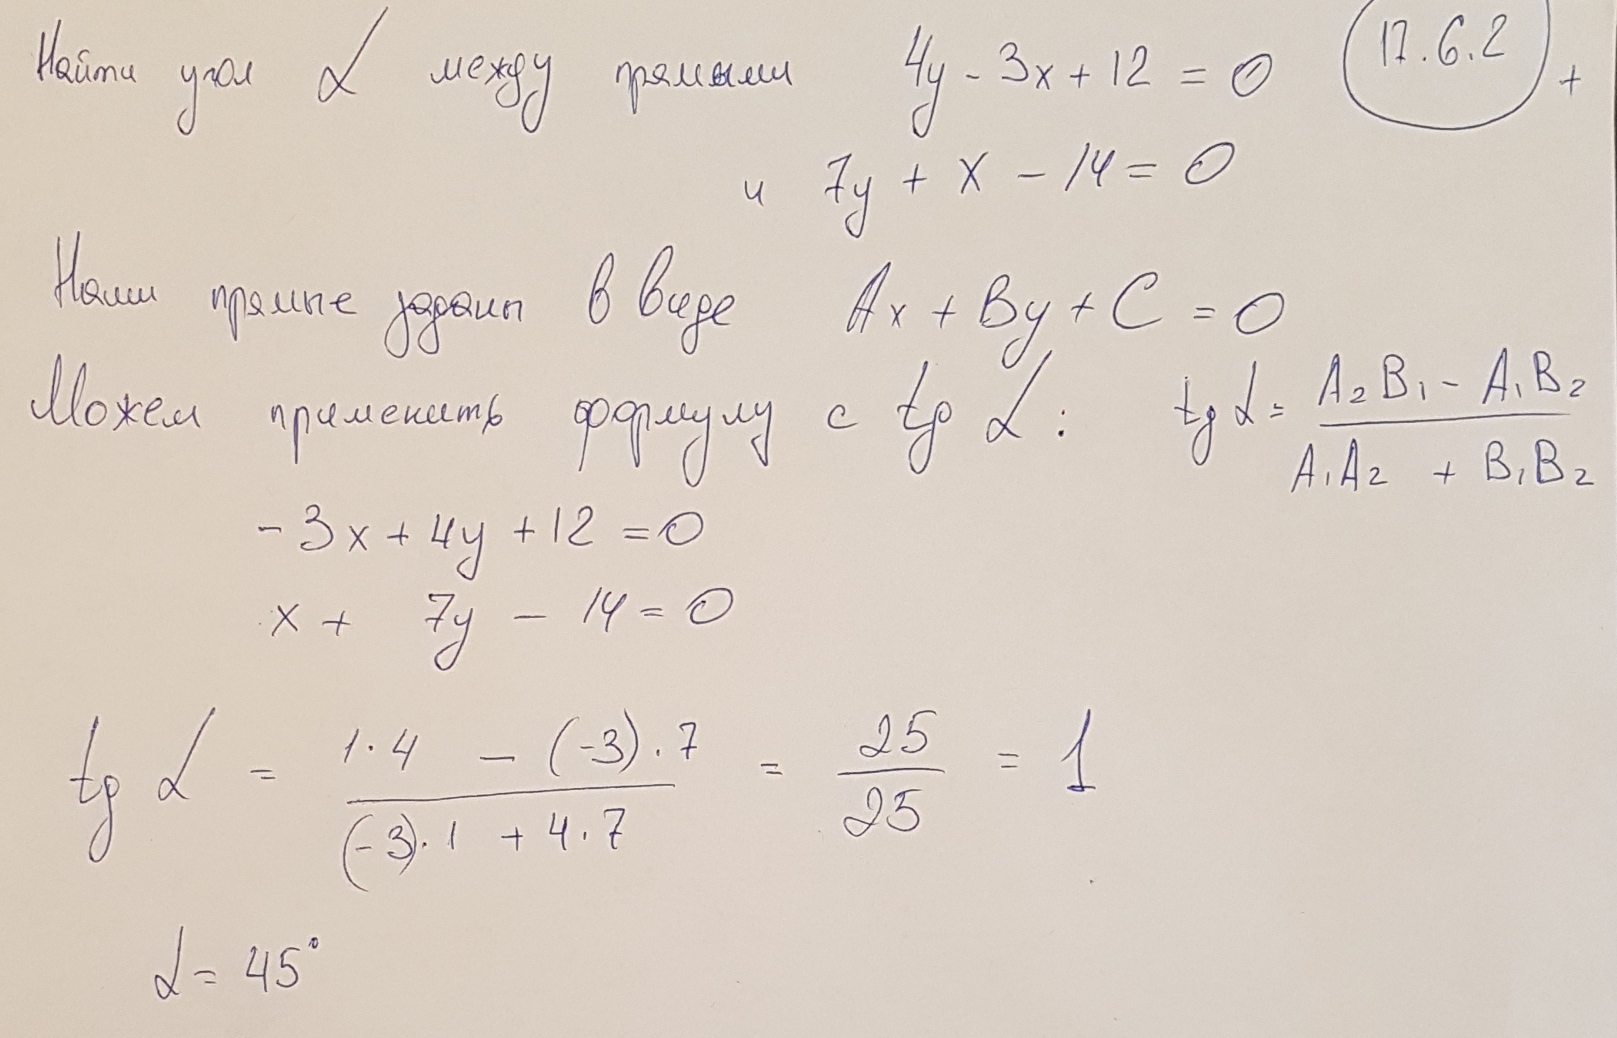 Найти угол α между прямыми 4y - 3x + 12 = 0 17.6.2 +
и 7y + x - 14 = 0
Наши прямые заданы в виде Ax + By + C = 0
Можем применить формулу с tg α : tg α = (A₂B₁ - A₁B₂) / (A₁A₂ + B₁B₂)
-3x + 4y + 12 = 0
x + 7y - 14 = 0
tg α = (1·4 - (-3)·7) / ((-3)·1 + 4·7) = 25/25 = 1
α = 45°